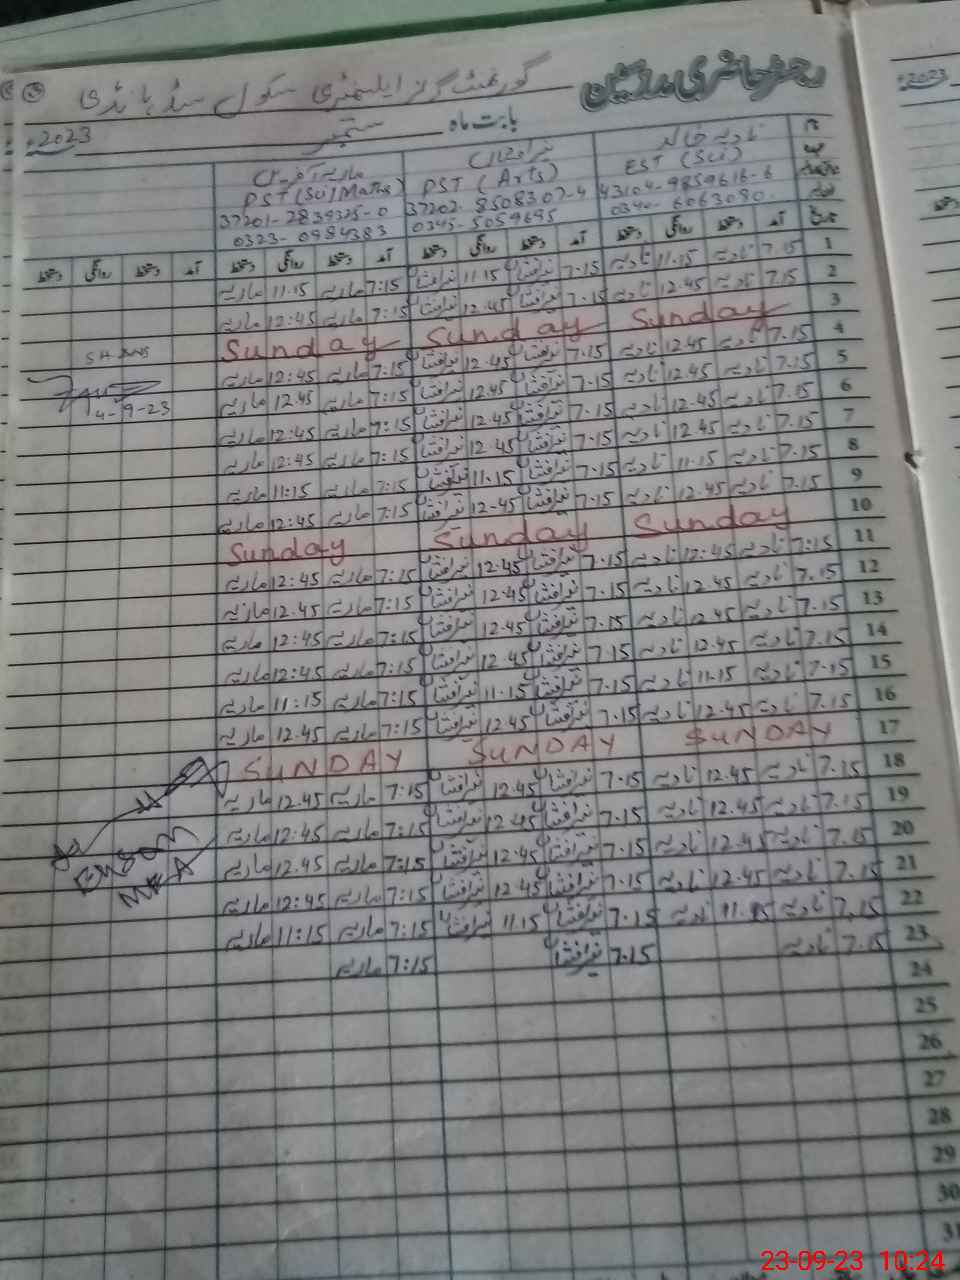 رجسٹر حاضری مدرسین گورنمنٹ گرلز ایلیمنٹری سکول
بابت ماہ ستمبر 2023
نادیہ خالد
EST (Sci) PST (Arts) PST (Sci/Maths)
43104-9859616-6 37202-8508307-4 37201-2839325-0
0340-6063080 0345-5059695 0323-0984383
تاریخ آمد دستخط روانگی دستخط آمد دستخط روانگی دستخط آمد دستخط روانگی دستخط آمد دستخط روانگی دستخط
1 7.15 نادیہ 11.15 نادیہ 7.15 11.15 7:15 ماریہ 11.15 ماریہ
2 7.15 نادیہ 12.45 نادیہ 7.15 12.45 7:15 ماریہ 12:45 ماریہ
3 Sunday Sunday Sunday
4 7.15 نادیہ 12.45 نادیہ 7.15 12.45 7:15 ماریہ 12:45 ماریہ
5 7.15 نادیہ 12.45 نادیہ 7.15 12.45 7:15 ماریہ 12.45 ماریہ
4-9-23
6 7.15 نادیہ 12.45 نادیہ 7.15 12.45 7:15 ماریہ 12:45 ماریہ
7 7.15 نادیہ 12.45 نادیہ 7.15 12.45 7:15 ماریہ 12:45 ماریہ
8 7.15 نادیہ 11.15 نادیہ 7.15 11.15 7:15 ماریہ 11:15 ماریہ
9 7.15 نادیہ 12.45 نادیہ 7.15 12-45 7:15 ماریہ 12:45 ماریہ
10 Sunday Sunday Sunday
11 7:15 نادیہ 12:45 نادیہ 7.15 12.45 7:15 ماریہ 12:45 ماریہ
12 7.15 نادیہ 12.45 نادیہ 7.15 12.45 7:15 ماریہ 12.45 ماریہ
13 7.15 نادیہ 12.45 نادیہ 7.15 12.45 7:15 ماریہ 12:45 ماریہ
14 7.15 نادیہ 12.45 نادیہ 7.15 12.45 7:15 ماریہ 12:45 ماریہ
15 7.15 نادیہ 11.15 نادیہ 7.15 11.15 7:15 ماریہ 11:15 ماریہ
16 7.15 نادیہ 12.45 نادیہ 7.15 12.45 7:15 ماریہ 12.45 ماریہ
17 SUNDAY SUNDAY SUNDAY
18 7.15 نادیہ 12.45 نادیہ 7.15 12.45 7:15 ماریہ 12.45 ماریہ
19 7.15 نادیہ 12.45 نادیہ 7.15 12.45 7:15 ماریہ 12:45 ماریہ
20 7.15 نادیہ 12.45 نادیہ 7.15 12.45 7:15 ماریہ 12.45 ماریہ
MEA
21 7.15 نادیہ 12.45 نادیہ 7.15 12.45 7:15 ماریہ 12:45 ماریہ
22 7.15 نادیہ 11.15 نادیہ 7.15 11.15 7:15 ماریہ 11:15 ماریہ
23 7.15 نادیہ 7.15 7:15 ماریہ
24
25
26
27
28
29
30
31
2023
23-09-23 10:24